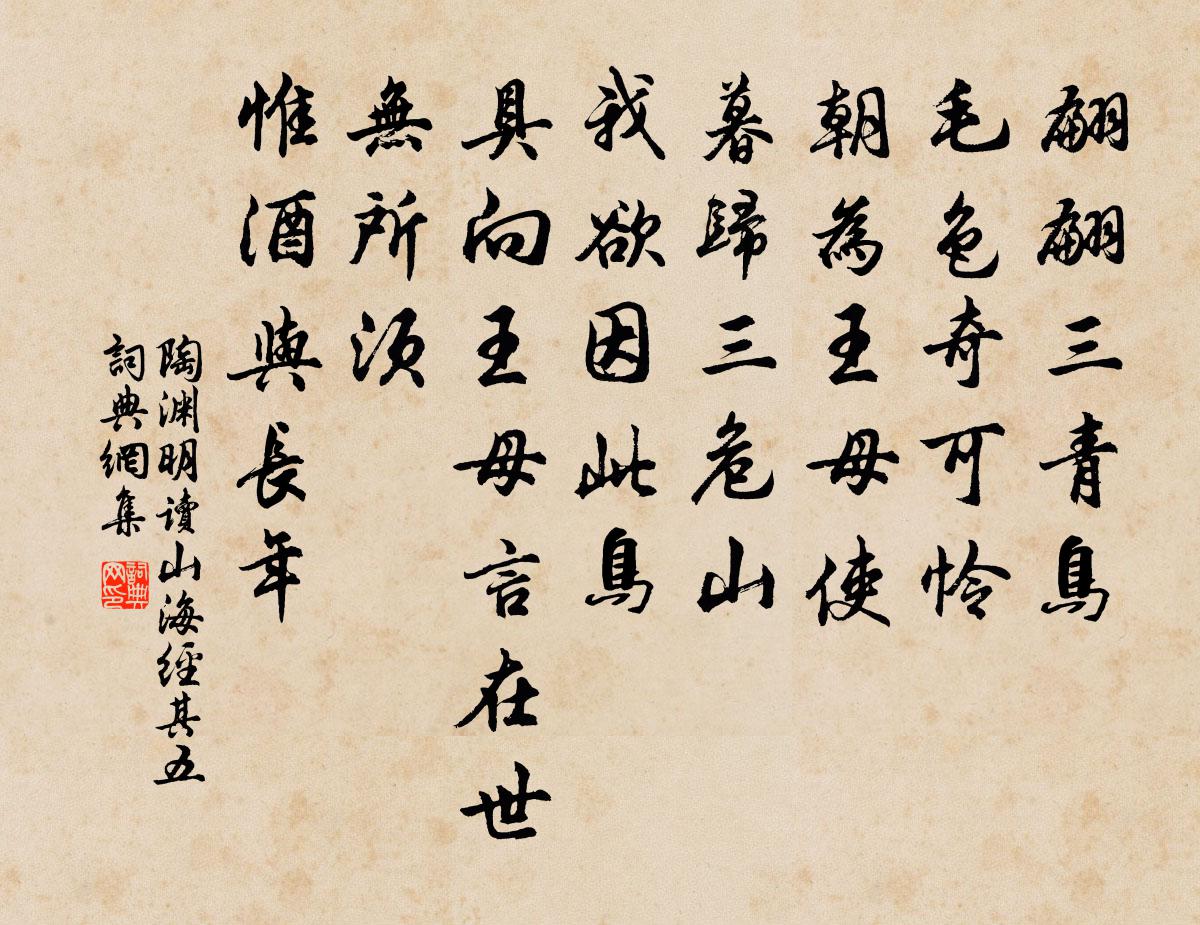 翩翩三青鳥
毛色奇可怜
朝為王母使
暮歸三危山
我欲因此鳥
具向王母言在世
無所須
惟酒與長年
陶淵明讀山海經其五
詞典網集
詞典
网印